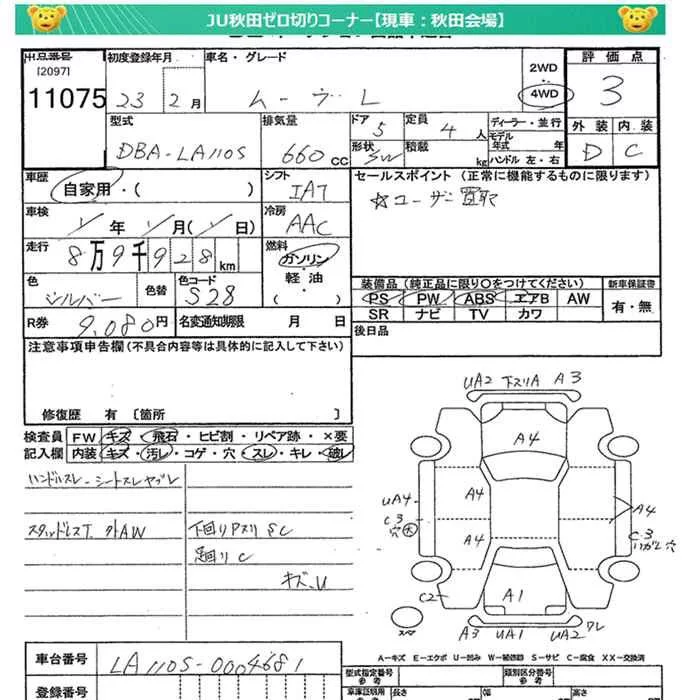 JU秋田ゼロ切りコーナー【現車：秋田会場】
出品番号 初度登録年月 車名・グレード 2WD 4WD 評価点
[2097]
11075 23 2月 ムーヴL 3
型式 排気量 ドア 5 定員 4人 ディーラー・並行 外装 内装
DBA-LA110S 660cc 形状 SW 積載 kg モデル年式 年 ハンドル 左・右 D C
車歴 自家用・( ) シフト IA7 セールスポイント (正常に機能するものに限ります)
☆ユーザー買取
車検 年 月( 日) 冷房 AAC
走行 8万9千928km 燃料 ガソリン・軽油( )
色 シルバー 色替 色コード S28
装備品 (純正品に限り○をつけてください) 新車保証書
PS PW ABS エアB AW 有・無
SR ナビ TV カワ
R券 9,080円 名変通知期限 月 日 後日品
注意事項申告欄(不具合内容等は具体的に記入して下さい)
修復歴 有 〔箇所 〕
検査員 FW キズ・飛石・ヒビ割・リペア跡・×要
記入欄 内装 キズ・汚レ・コゲ・穴・スレ・キレ・破レ
ハンドルスレ-シートスレヤブレ
スタッドレスT. 外AW 下回りPスリ SC
足回り C
キズ、U
UA2 下スリA A3
A4
A4
UA4
C3
穴大
A4
A4
C3
穴
C2
A1
スペア
A3 UA1 UA2 ワレ
A-キズ E-エクボ U-凹み W-補修跡 S-サビ C-腐食 XX-交換済
車台番号 LA110S-0004681
登録番号
型式指定番号 参考 類別区分番号 参考
長さ 幅 高さ